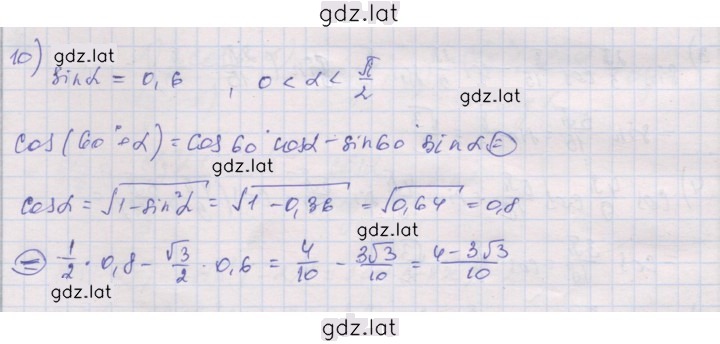 gdz.lat
10) gdz.lat
sinα = 0,6 , 0 < α < π/2
gdz.lat
cos(60°+α) = cos60° cosα - sin60° sinα =
gdz.lat
cosα = √(1 - sin²α) = √(1 - 0,36) = √0,64 = 0,8
gdz.lat
= 1/2 · 0,8 - √3/2 · 0,6 = 4/10 - 3√3/10 = (4 - 3√3)/10
gdz.lat
gdz.lat